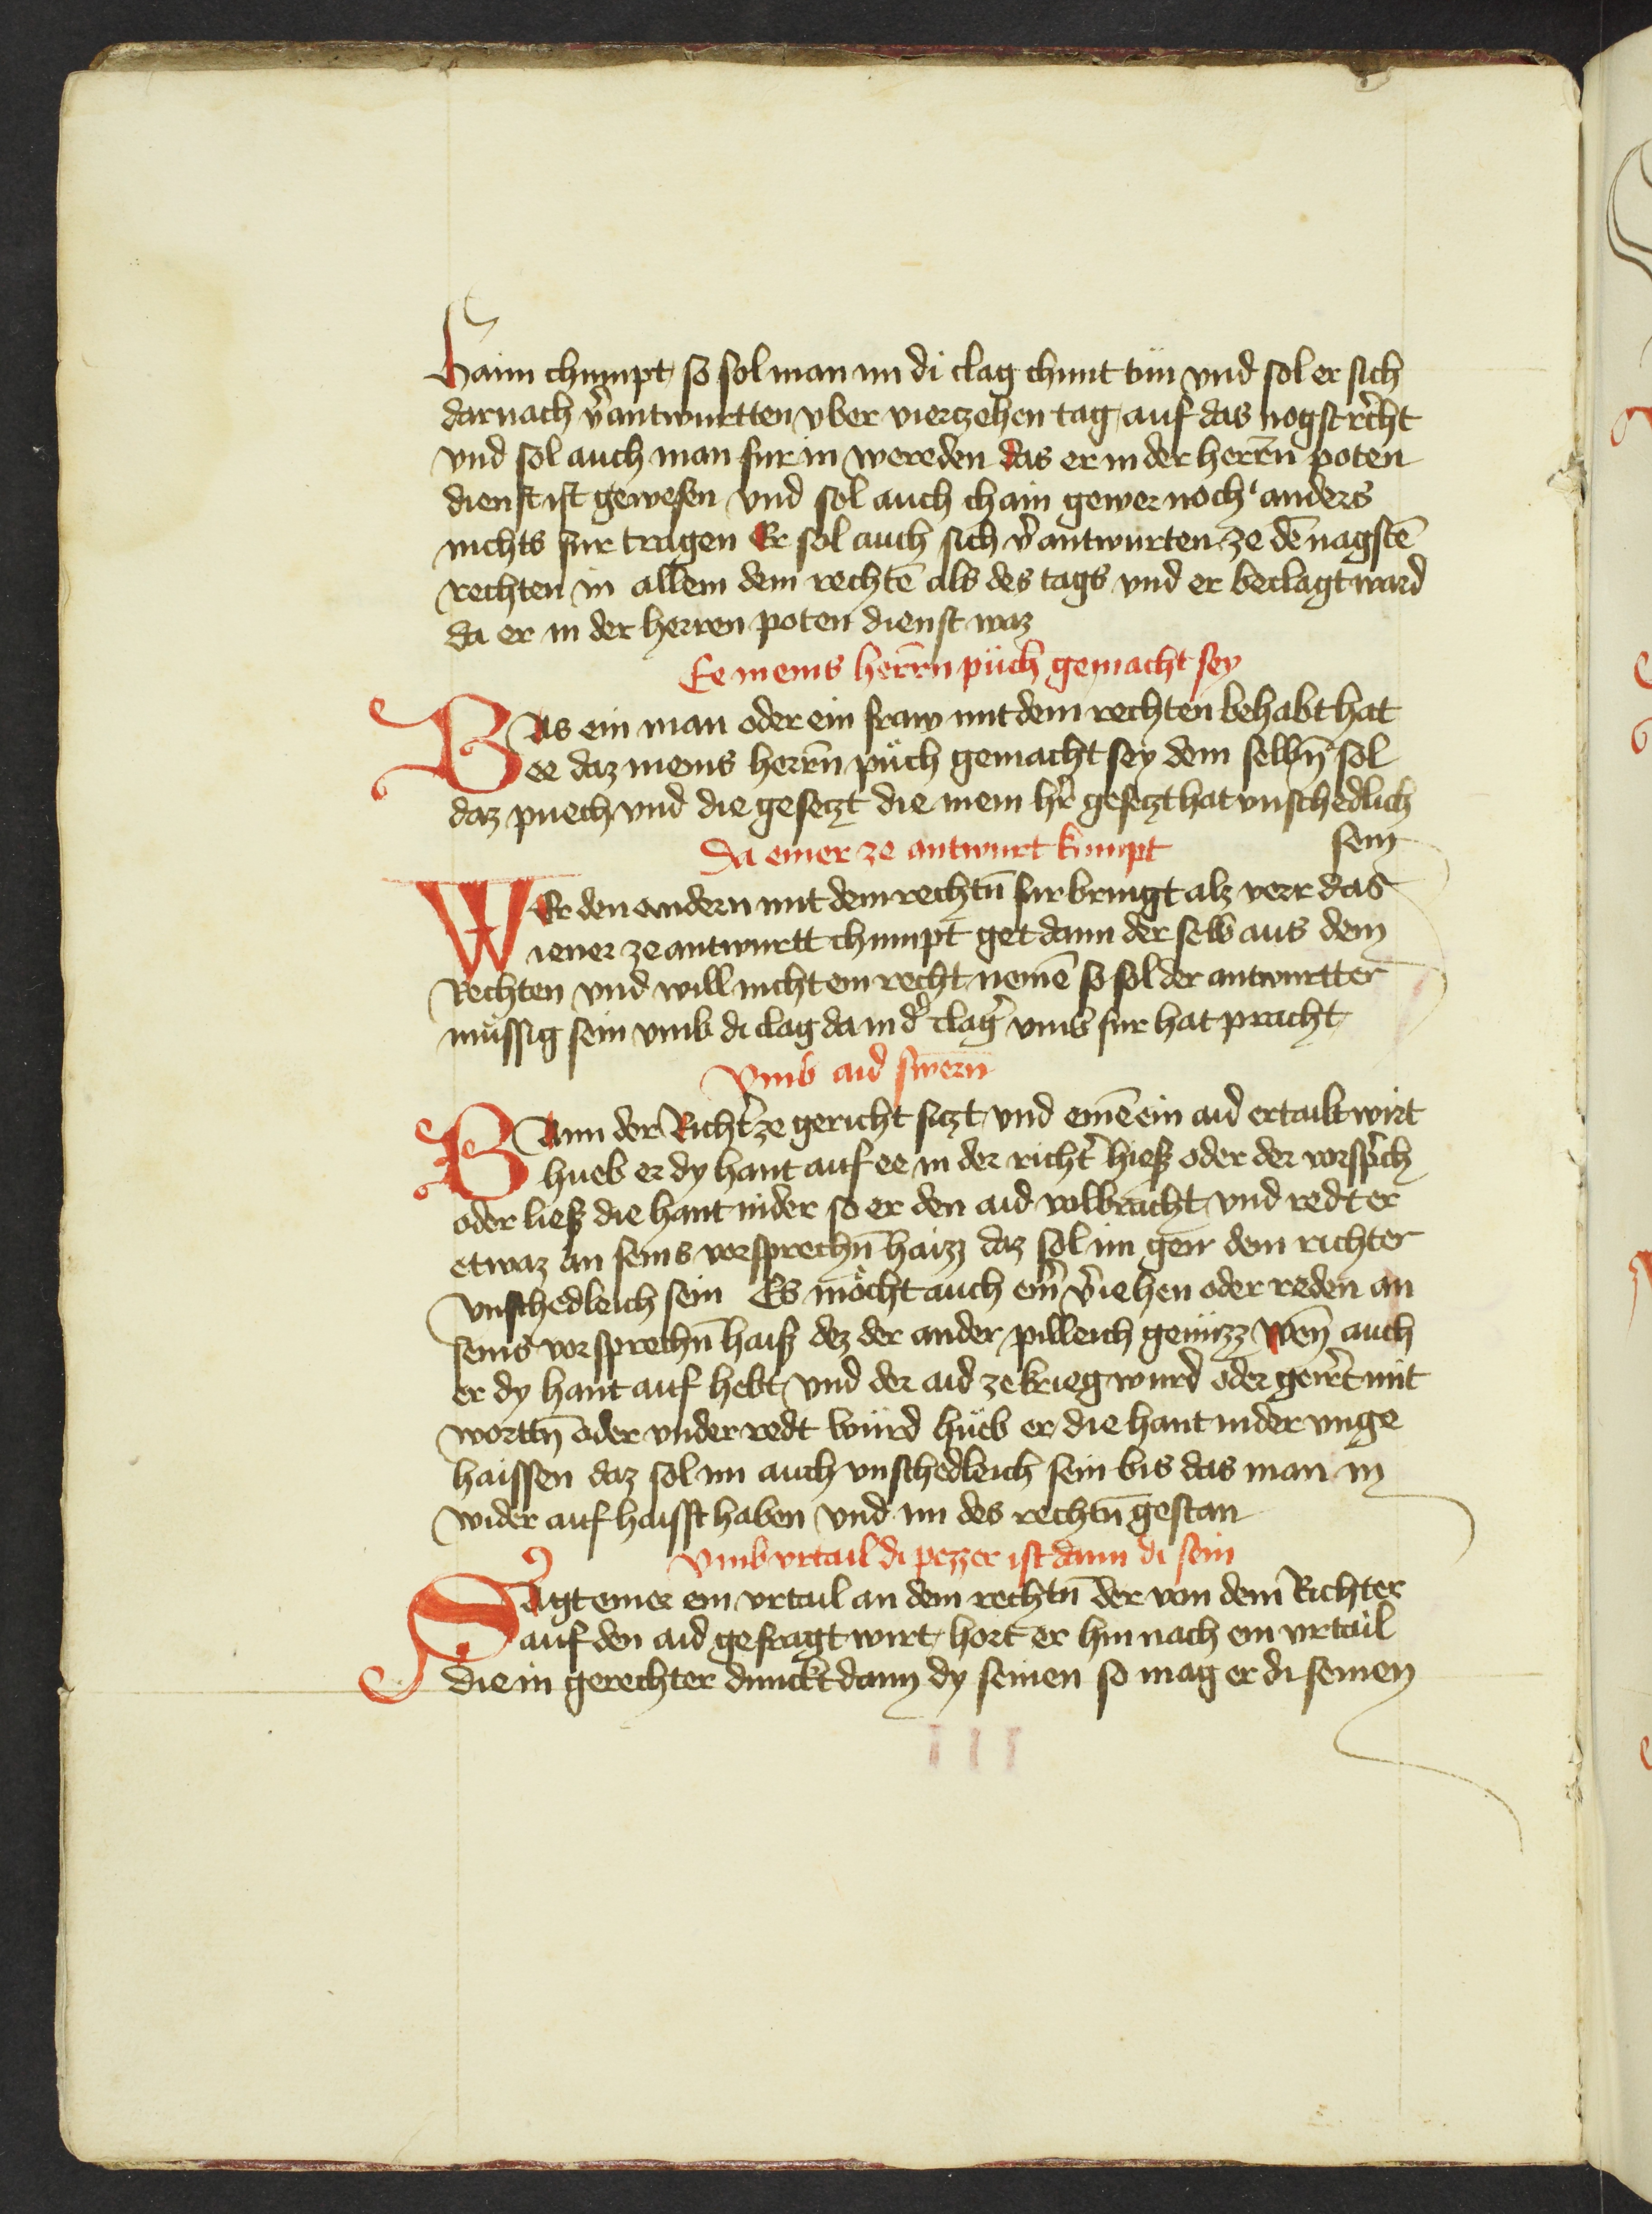 Haim chumpt so sol man im di clag chunt tün vnd sol er sich
darnach v̄antwurtten vber vierczehen tag auf das nogst rēcht
vnd sol auch man fur in wereden das er in der herrñ poten
dienst ist gewesen vnd sol auch chain gewer noch anders
nichts fur tragen Er sol auch sich v̄antwurten ze dē nagstē
rechten in allem dem rechtē als des tags vnd er beclagt ward
da er in der herren poten dienst waz
Ee meins herrñ püch gemacht sey
Was ein man oder ein fraw mit dem rechten behabt hat
ee daz meins herrñ püch gemacht sey dem selbñ sol
daz puech vnd die geseczt die mein hr̄ geseczt hat vnschedlich
sein
Da einer ze antwurt kumpt
WEr den andern mit dem rechtñ fur bringt alz verr das
iener ze antwurtt chumpt get dann der selb aus dem
Rechten vnd will nicht ein recht nemē so sol der antwurtter
müssig sein vmb di clag da in d̄ clag̃ vms fur hat pracht
Vmb aid swern
Wann der Richt̄ ze gericht siczt vnd einē ein aid ertailt wirt
hueb er dy hant auf ee in der richt̄ hiesz oder der vorsp̄ch
oder liesz die hant nider so er den aid volbracht vnd redt er
etwaz an seins vorsprechñ haizz daz sol im gen dem richter
vnschedleich sein Es möcht auch ein̄ v̄iehen oder reden an
seins vorsprechñ haisz dez der ander pilleich geniizz Weñ auch
er dy hant auf hebt vnd der aid ze krieg wurd oder geirr̄t mit
worttñ oder vnder redt würd hüeb er die hant nider vnge
haissen daz sol im auch vnschedleich sein bis das man in
wider auf haisst haben vnd im des rechtñ gestan
Vmb vrtail di pezzer ist dann di sein
Sagt einer ein vrtail an dem rechtñ der von dem Richter
auf den aid gefragt wirt hort er hin nach ein vrtail
die in gerechter dunckt dann dy seinen so mag er di seinen